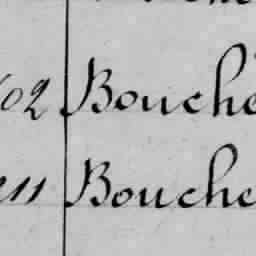 02 Bouche
211 Bouche